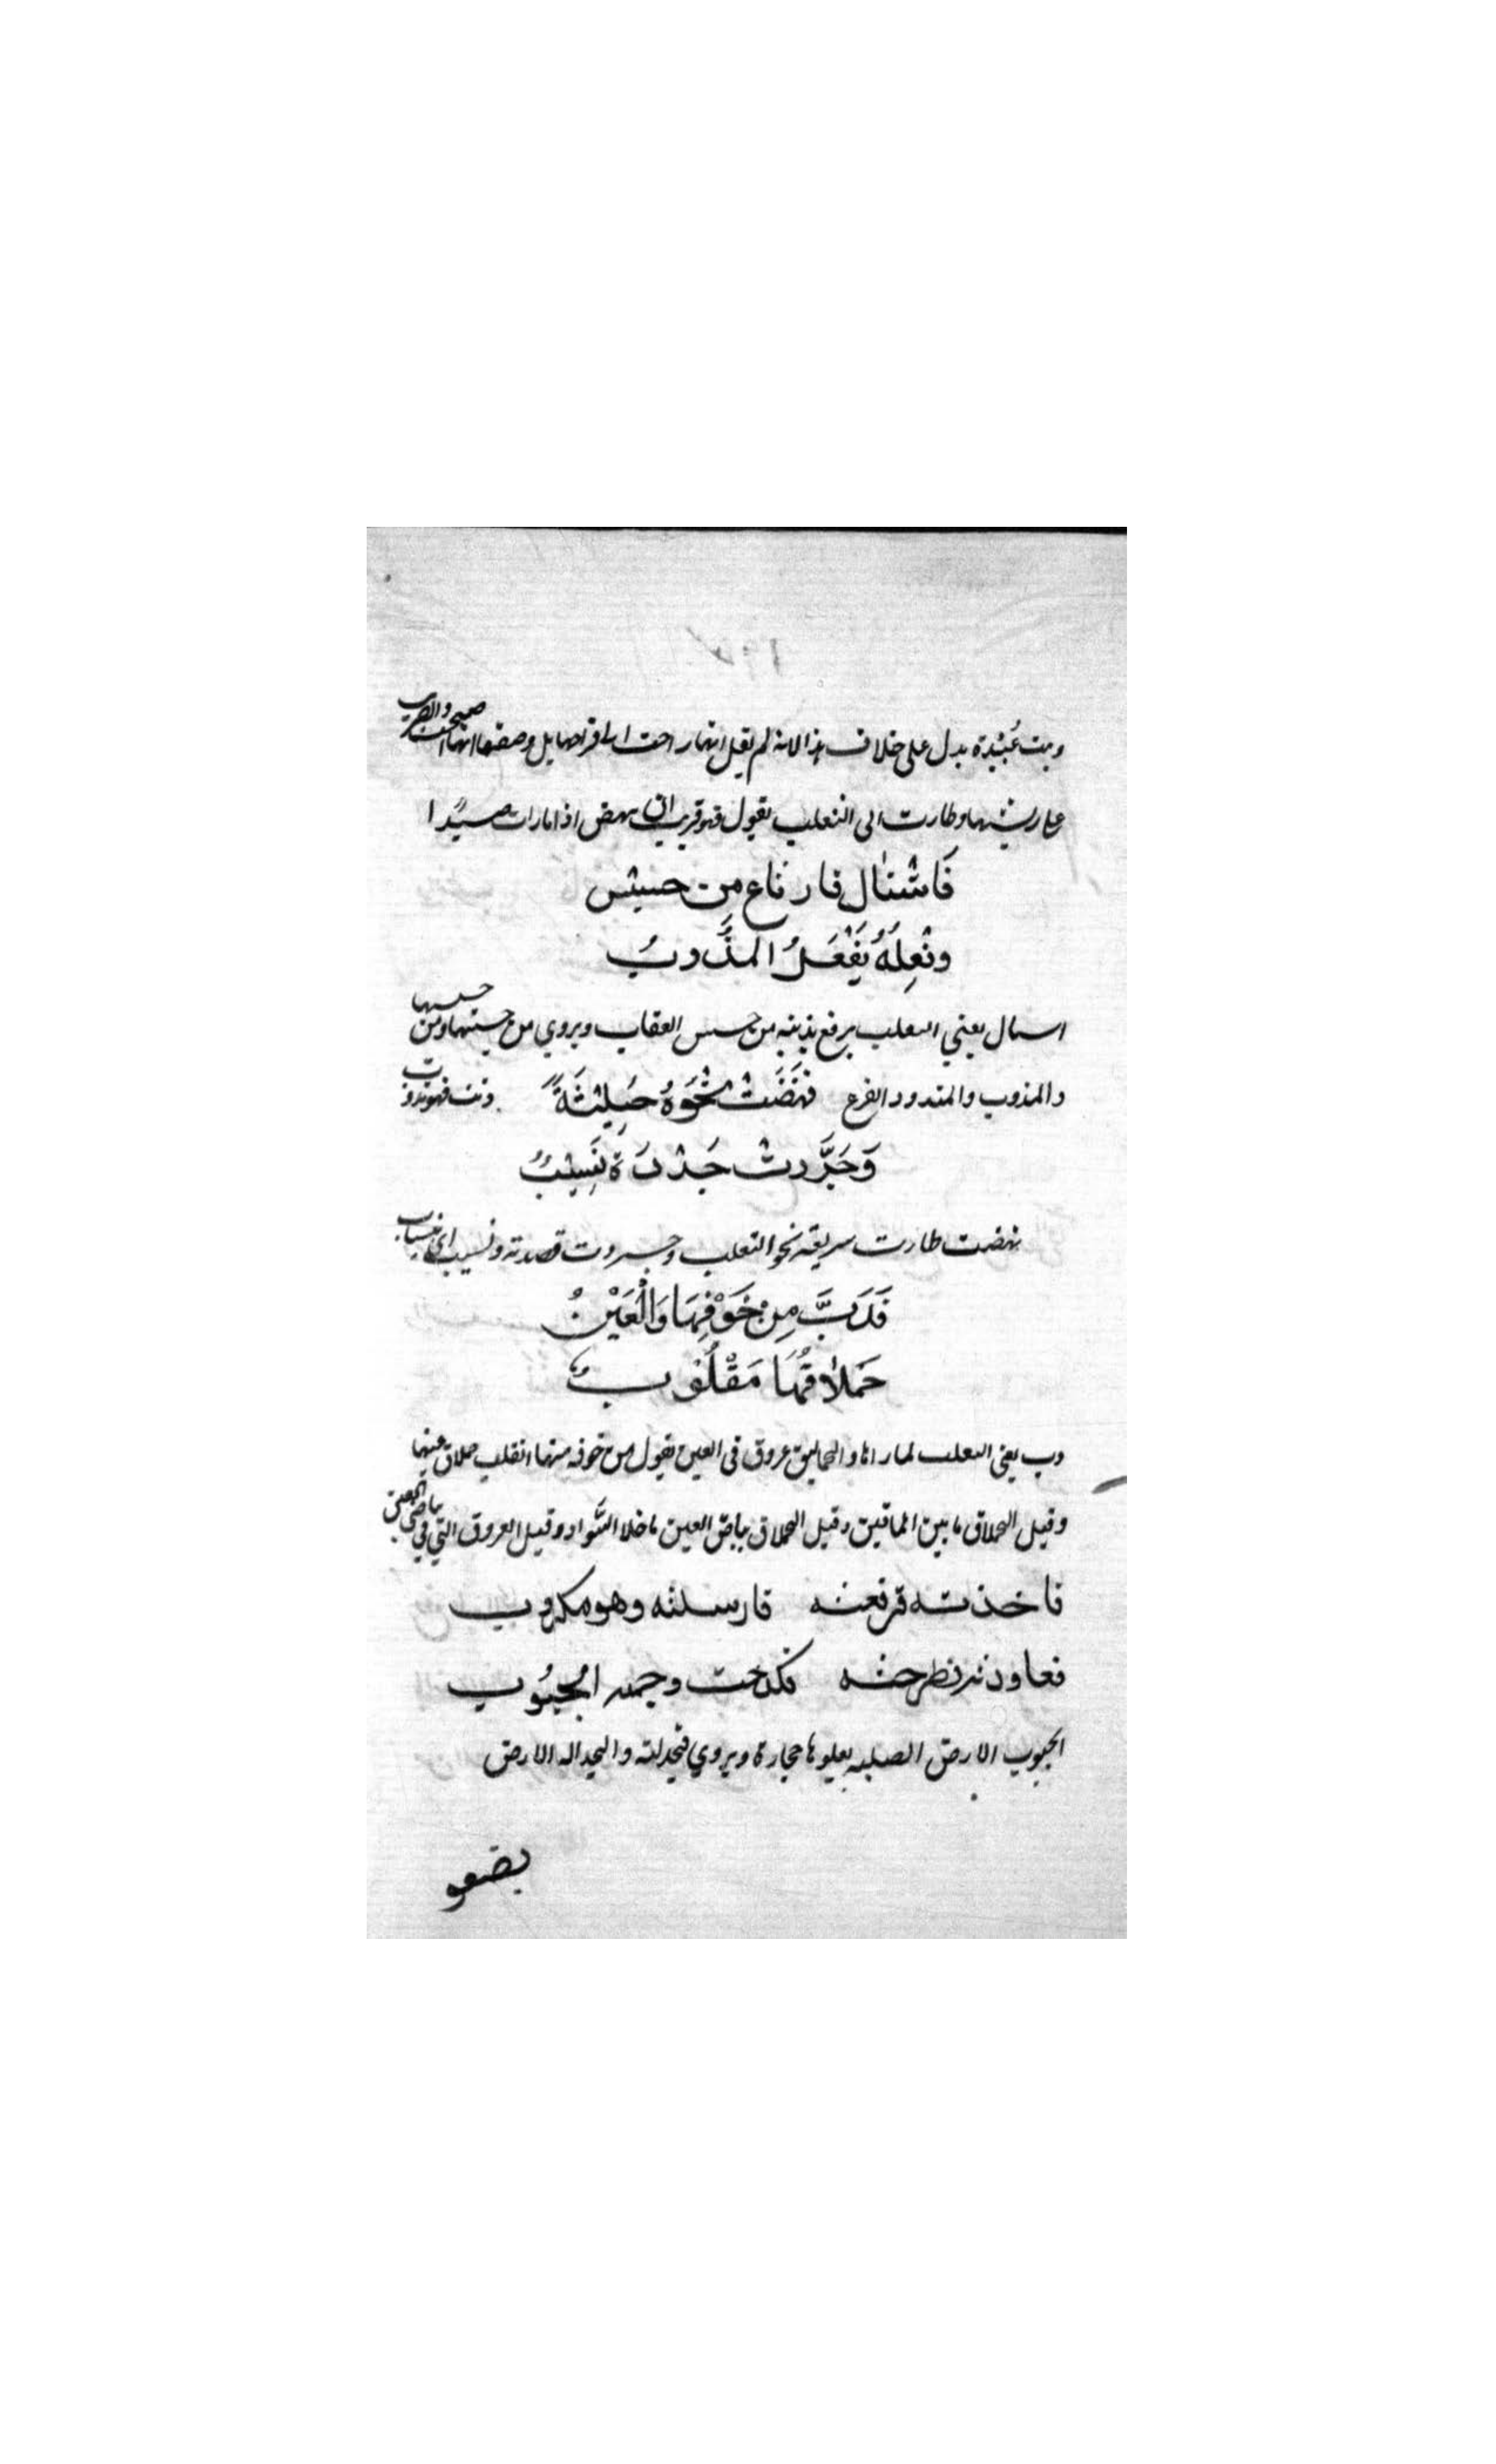 وبيت عُبَيْدة يدل على خلاف هذا لانه لم يقل انها راحت الى فراخها بل وصفها انها اصبحت والضريب
على ريشها وطارت الى الثعلب يقول فهو قريب ان ينهض اذا ما رات صيدا
فَاشْتَال فارتاع من حسيس
وفعِلَهُ يَفْعَلُ المذْؤوبُ
اشتال يعني الثعلب يرفع بذنبه من حسيس العقاب ويروي من حسيسها ومن حسها
والمذوب والمذوود الفزع فنَهَضَتْ نَحْوَهُ حَثِيثَةً
وَحَرَّدتْ حَرْدَهُ تَسِيْبُ
نهضت طارت سريعة نحو الثعلب وحردت قصدته وتسيب اي تنساب
فَدَبَّ مِنْ خَوْفِهَا وَالْعَيْنُ
حَملاقُهَا مَقْلُوبُ
دب يعني الثعلب لما راها والحماليق عروق في العين يقول من خوفه منها انقلب حملاق عينها
وقيل الحملاق ما بين الماقين وقيل الحملاق بياض العين ما خلا السَّواد وقيل العروق التي في بياض العين
فاخذته فرفعته فارسلته وهو مكروب
فعاودته فطرحته فكدحت وجهه الجبُوب
الجبوب الارض الصلبه يعلوها حجارة ويروي فجدلته والجداله الارض